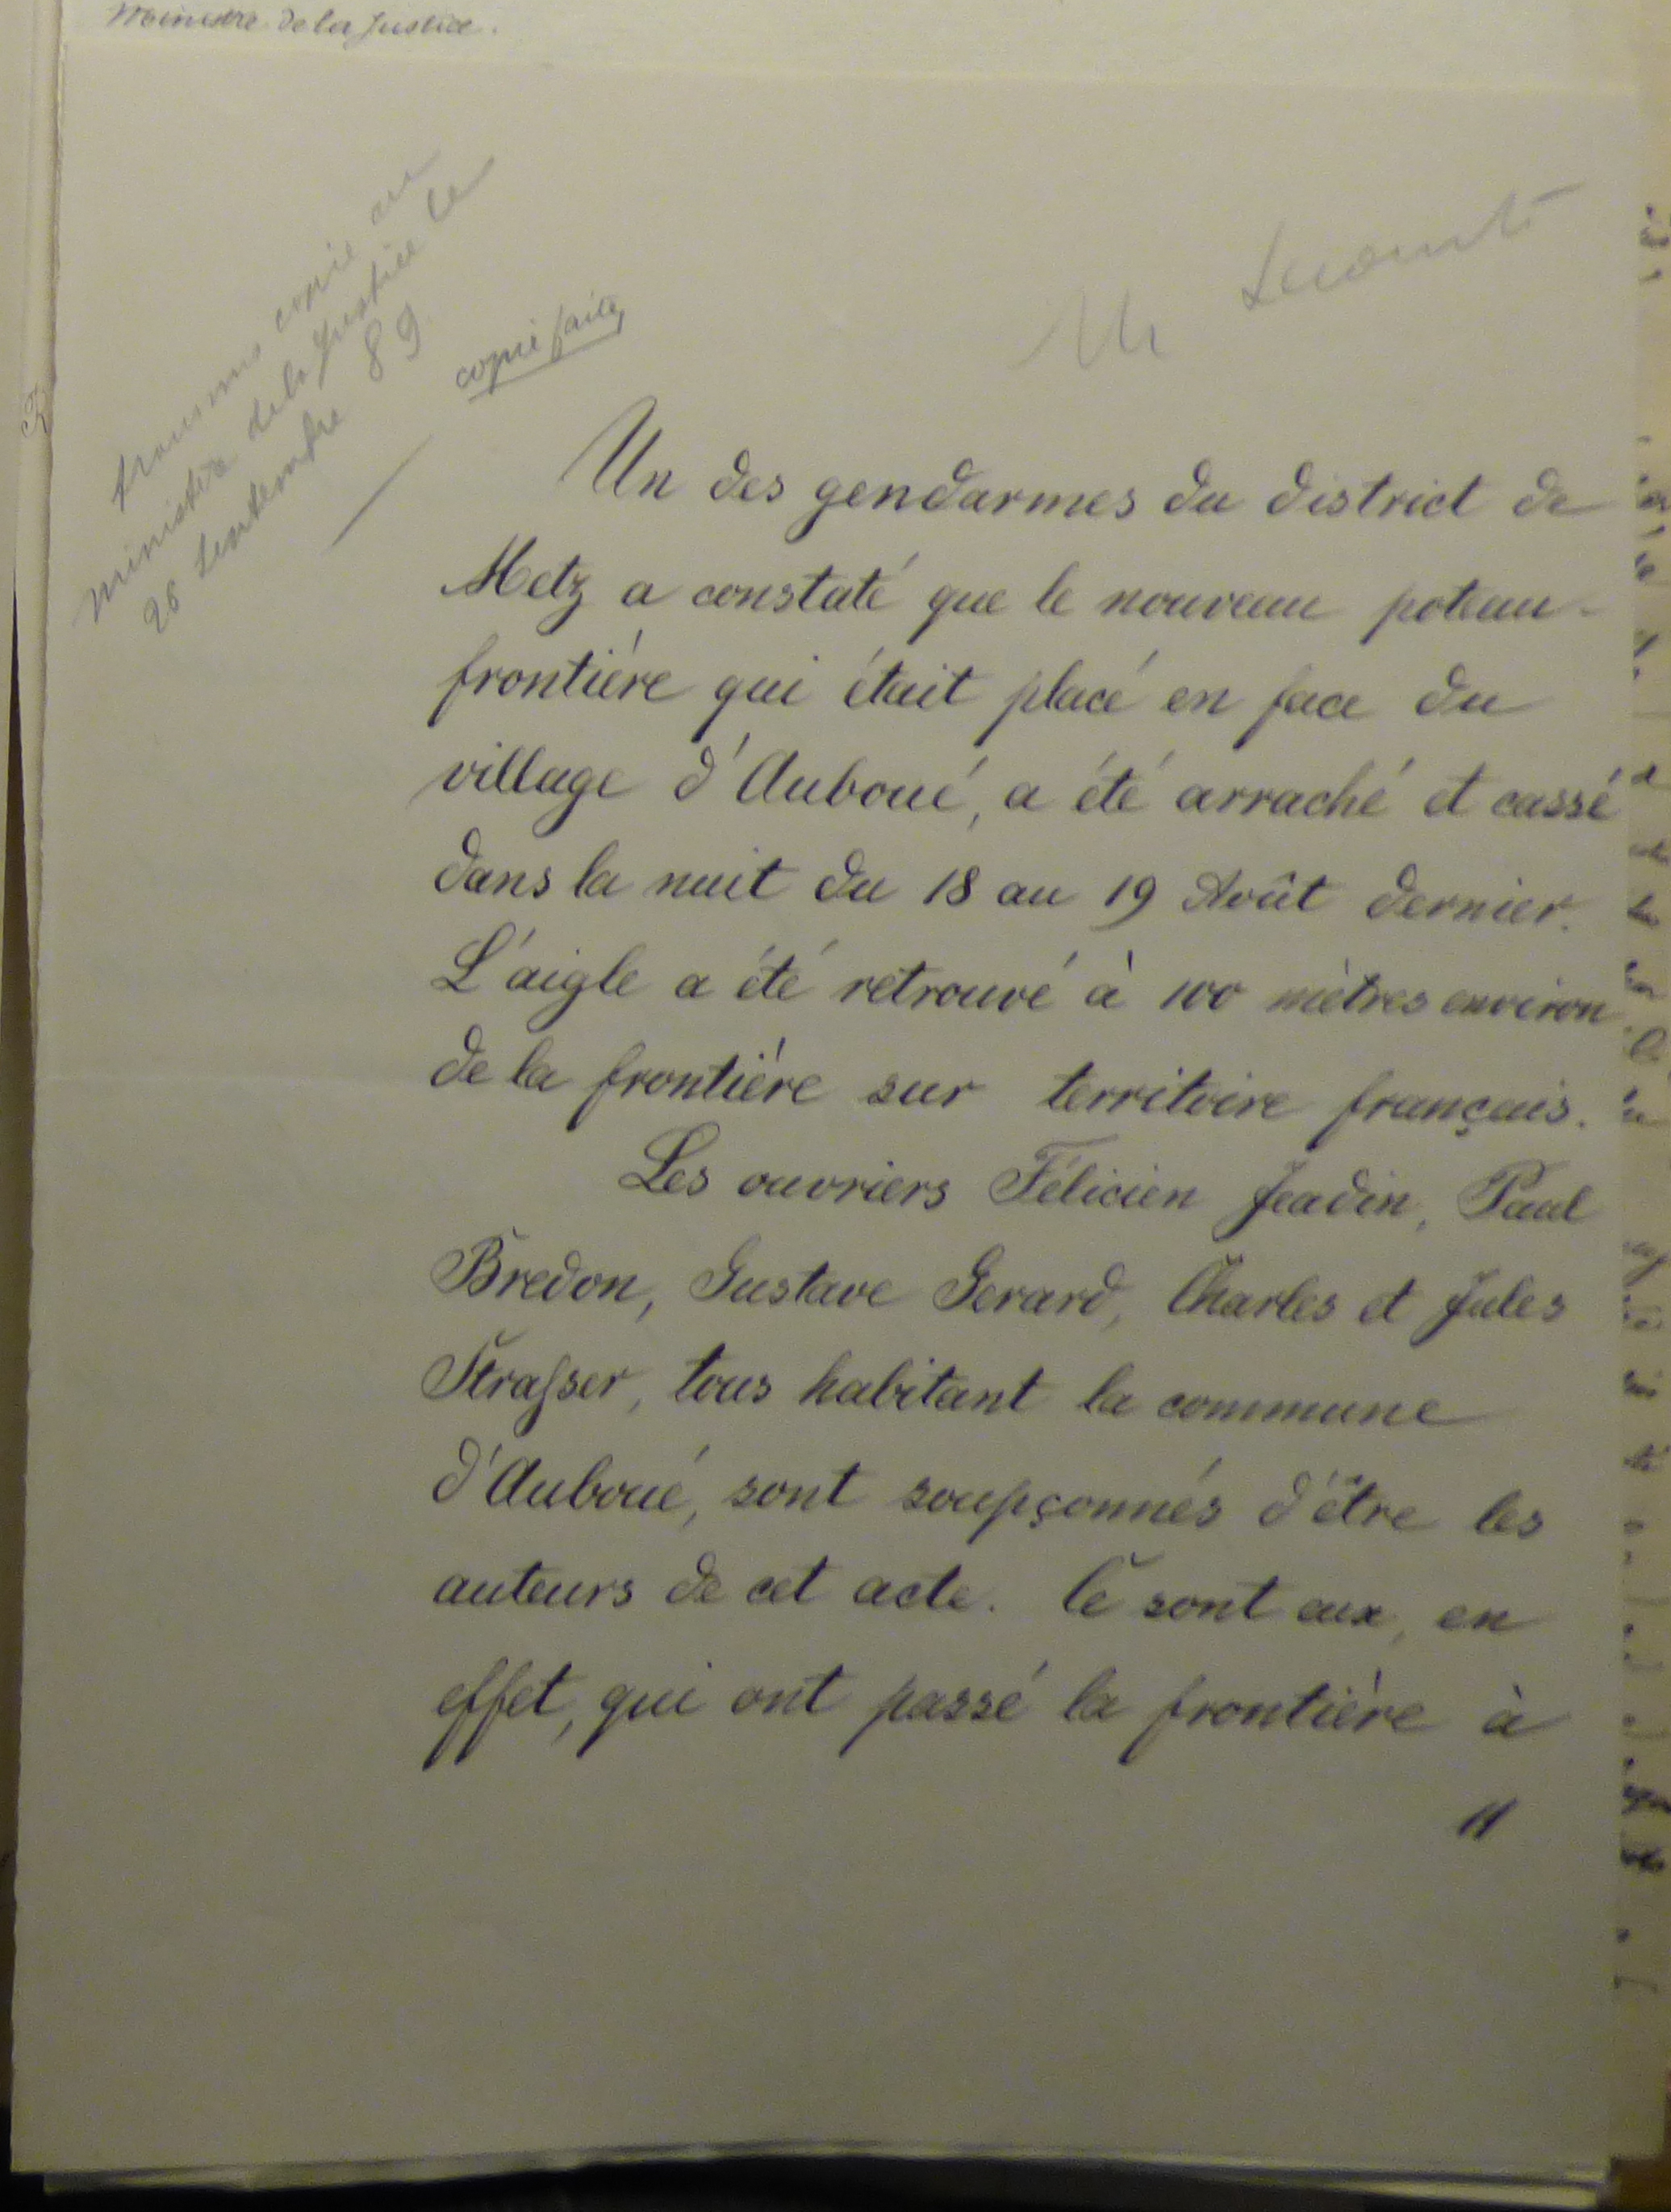 Ministre de la Justice.
transmis copie au
Ministère de la Justice le
26 Septembre 89
copie faite
Mr Lecomte
Un des gendarmes du district de
Metz a constaté que le nouveau poteau-
frontière qui était placé en face du
village d'Auboué, a été arraché et cassé
dans la nuit du 18 au 19 Août dernier.
L'aigle a été retrouvé à 100 mètres environ
de la frontière sur territoire français.
Les ouvriers Félicien Jeadin, Paul
Bredon, Gustave Gerard, Charles et Jules
Strasser, tous habitant la commune
d'Auboué, sont soupçonnés d'être les
auteurs de cet acte. Ce sont eux, en
effet, qui ont passé la frontière à
"